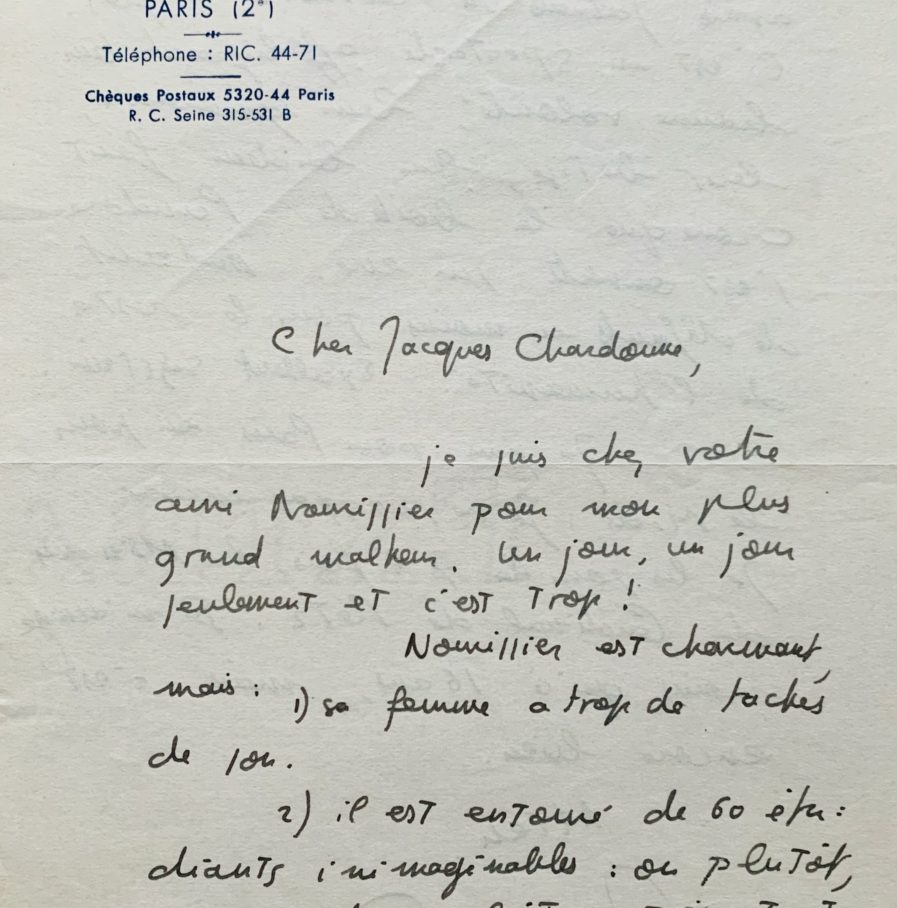 PARIS (2e)
Téléphone : RIC. 44-71
Chèques Postaux 5320-44 Paris
R. C. Seine 315-531 B
Cher Jacques Chardonne,
je suis chez votre
ami Nourissier pour mon plus
grand malheur. Un jour, un jour
seulement et c'est trop !
Nourissier est charmant,
mais :
1) sa femme a trop de taches
de son.
2) il est entouré de 60 étu-
diants inimaginables : ou plutôt,